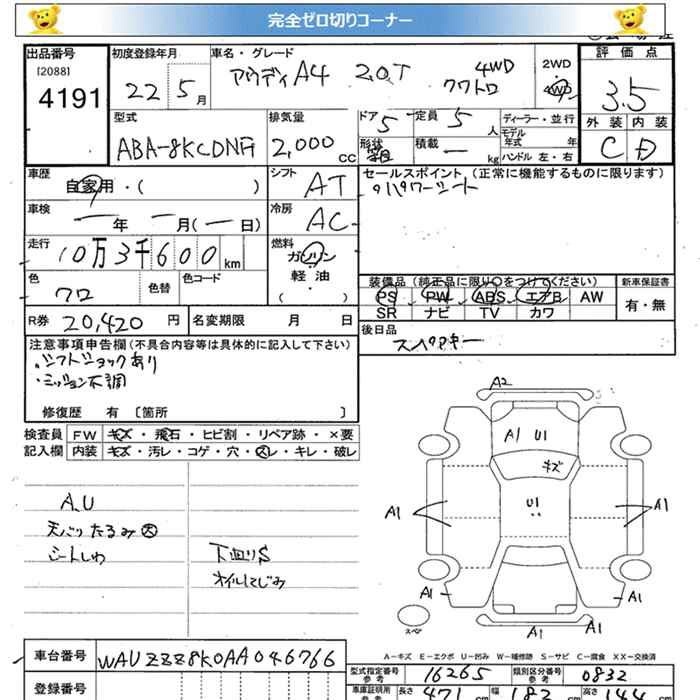 完全ゼロ切りコーナー
出品番号
[2088]
4191
初度登録年月
22 5月
車名・グレード
アウディA4 2.0T 4WD
クワトロ
2WD
4WD
評価点
3.5
外装 内装
C D
型式
排気量
2,000 CC
ドア 5
形状
定員 5 人
積載 ー kg
ディーラー・並行
モデル
年式 年
ハンドル 左・右
車歴
自家用・( )
シフト AT
セールスポイント (正常に機能するものに限ります)
パワーシート
車検
ー年 ー月(ー日)
冷房 AC
走行
10万3千600 km
燃料
ガソリン
軽油
( )
色
クロ
色替
色コード
装備品(純正品に限り○をつけてください)
PS PW ABS エアB AW
SR ナビ TV カワ
新車保証書
有・無
R券 20,420 円
名変期限 月 日
後日品
スペアキー
注意事項申告欄(不具合内容等は具体的に記入して下さい)
・シフトショックあり
・ミッション不調
修復歴 有 〔箇所 〕
検査員
記入欄
FW キズ・飛石・ヒビ割・リペア跡・×要
内装 キズ・汚レ・コゲ・穴・スレ・キレ・破レ
A.U
天バリたるみ大
シートしわ
下回りS
オイルにじみ
A2
A1 U1
キズ
U1
A1
A1
A1
A1
A1
A1
スペア
A-キズ E-エクボ U-凹み W-補修跡 S-サビ C-腐食 XX-交換済
車台番号 WAUZZZ8K0AA046766
登録番号
型式指定番号
参考
16265
類別区分番号
参考
0832
車庫証明用
参考
長さ 471 cm 幅 182 cm 高さ 144 cm